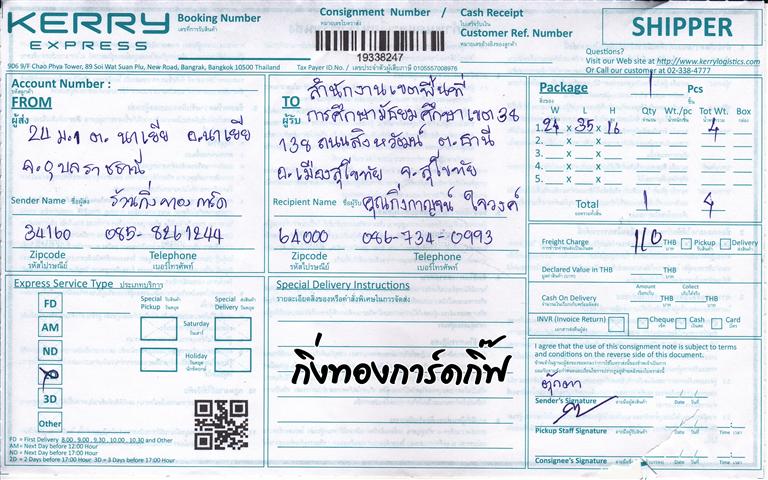 KERRY
EXPRESS
Booking Number
เลขที่การรับสินค้า
Consignment Number / Cash Receipt
หมายเลขใบตราส่ง ใบเสร็จรับเงิน
Customer Ref. Number
หมายเลขอ้างอิงของลูกค้า
19338247
SHIPPER
Questions?
Visit our Web site at http://www.kerrylogistics.com
Or Call our customer at 02-338-4777
906 9/F Chao Phya Tower, 89 Soi Wat Suan Plu, New Road, Bangrak, Bangkok 10500 Thailand
Tax Payer ID.No / เลขประจำตัวผู้เสียภาษี 0105557008976
Account Number :
รหัสลูกค้า
FROM
ผู้ส่ง
24 ม.1 ต. นาเยีย อ.นาเยีย
จ.อุบลราชธานี
Sender Name ชื่อผู้ส่ง ร้านกิ่งทองการ์ด
34160 085-8261244
Zipcode Telephone
รหัสไปรษณีย์ เบอร์โทรศัพท์
TO
ผู้รับ
สำนักงานเขตพื้นที่
การศึกษามัธยมศึกษาเขต 38
138 ถนนสิงหวัฒน์ ต.ธานี
อ.เมืองสุโขทัย จ.สุโขทัย
Recipient Name ชื่อผู้รับ คุณกิ่งกาญจน์ ใจวงค์
64000 086-734-0993
Zipcode Telephone
รหัสไปรษณีย์ เบอร์โทรศัพท์
Package 1 Pcs
สิ่งของ ชิ้น
W L H Qty Wt./pc Tot Wt. Box
1. 24 x 35 x 16 4
2. x x
3. x x
4. x x
5. x x
Total 1 4
Freight Charge 110 THB Pickup Delivery
Declared Value in THB THB
Amount Collect
Cash On Delivery THB THB
INVR (Invoice Return) Cheque Cash Card
I agree that the use of this consignment note is subject to
terms and conditions on the reverse side of this document.
ตุ๊กตา
Sender's Signature Date Time
Pickup Staff Signature Date Time
Consignee's Signature Date Time
Express Service Type ประเภทบริการ
FD
AM
ND
3D
Other
Special Pickup
Special Delivery
Saturday
วันเสาร์
Holiday
วันหยุด
FD = First Delivery 8.00 , 9.00 , 9.30 , 10.00 , 10.30 and Other
AM = Next Day before 12:00 Hour
ND = Next Day before 17:00 Hour
2D = 2 Days before 17:00 Hour 3D = 3 Days before 17:00 Hour
Special Delivery Instructions
รายละเอียดสิ่งของหรือคำสั่งพิเศษในการจัดส่ง
กิ่งทองการ์ดกิ๊ฟ